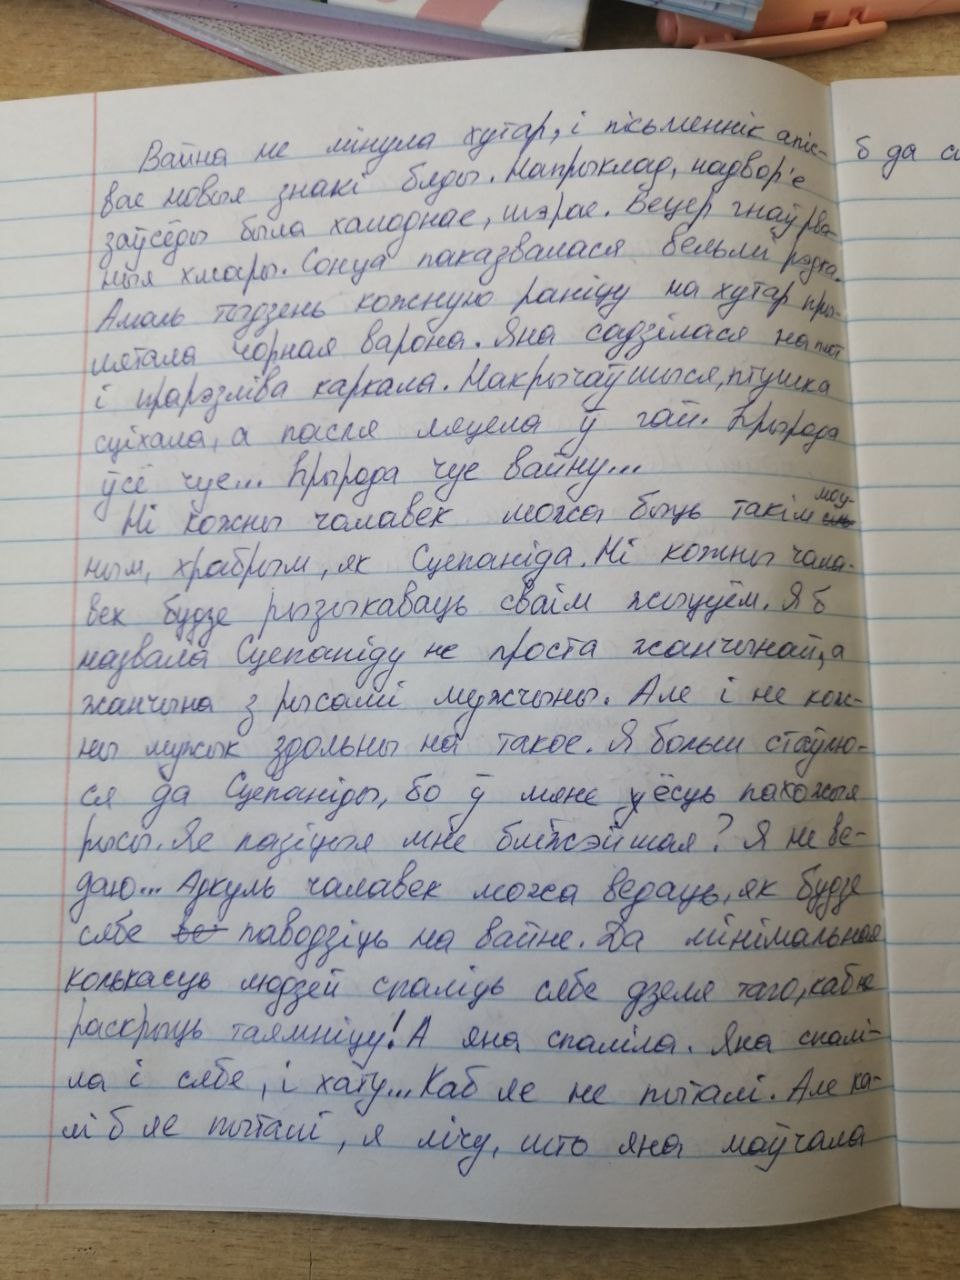 Вайна не мінула хутар, і пісьменнік апіс-
вае новыя знакі бяды. Напрыклад, надвор'е
заўсёды была халоднае, шэрае. Вецер гнаў рва-
ныя хмары. Сонца паказвалася вельмі рэдка.
Амаль тыдзень кожную раніцу на хутар пры-
лятала чорная варона. Яна садзілася на плот
і прарэзліва каркала. Накрычаўшыся, птушка
сціхала, а пасля ляцела ў гай. Прырода
ўсё чуе... Прырода чуе вайну...
Ні кожны чалавек можа быць такім моц-
ным, храбрым, як Сцепаніда. Ні кожны чала-
век будзе рызыкаваць сваім жыццём. Я б
назвала Сцепаніду не проста жанчынай, а
жанчына з рысамі мужчыны. Але і не кож-
ны мужык здольны на такое. Я больш стаўлю-
ся да Сцепаніды, бо ў мяне ёсць пахожыя
рысы. Яе пазіцыя мне бліжэйшая? Я не ве-
даю... Адкуль чалавек можа ведаць, як будзе
сябе паводзіць на вайне. Да мінімальная
колькасць людзей спаліць сябе дзеля таго, каб не
раскрыць таямніцу! А яна спаліла. Яна спалі-
ла і сябе, і хату... Каб яе не пыталі. Але ка-
лі б яе пыталі, я лічу, што яна маўчала
б да